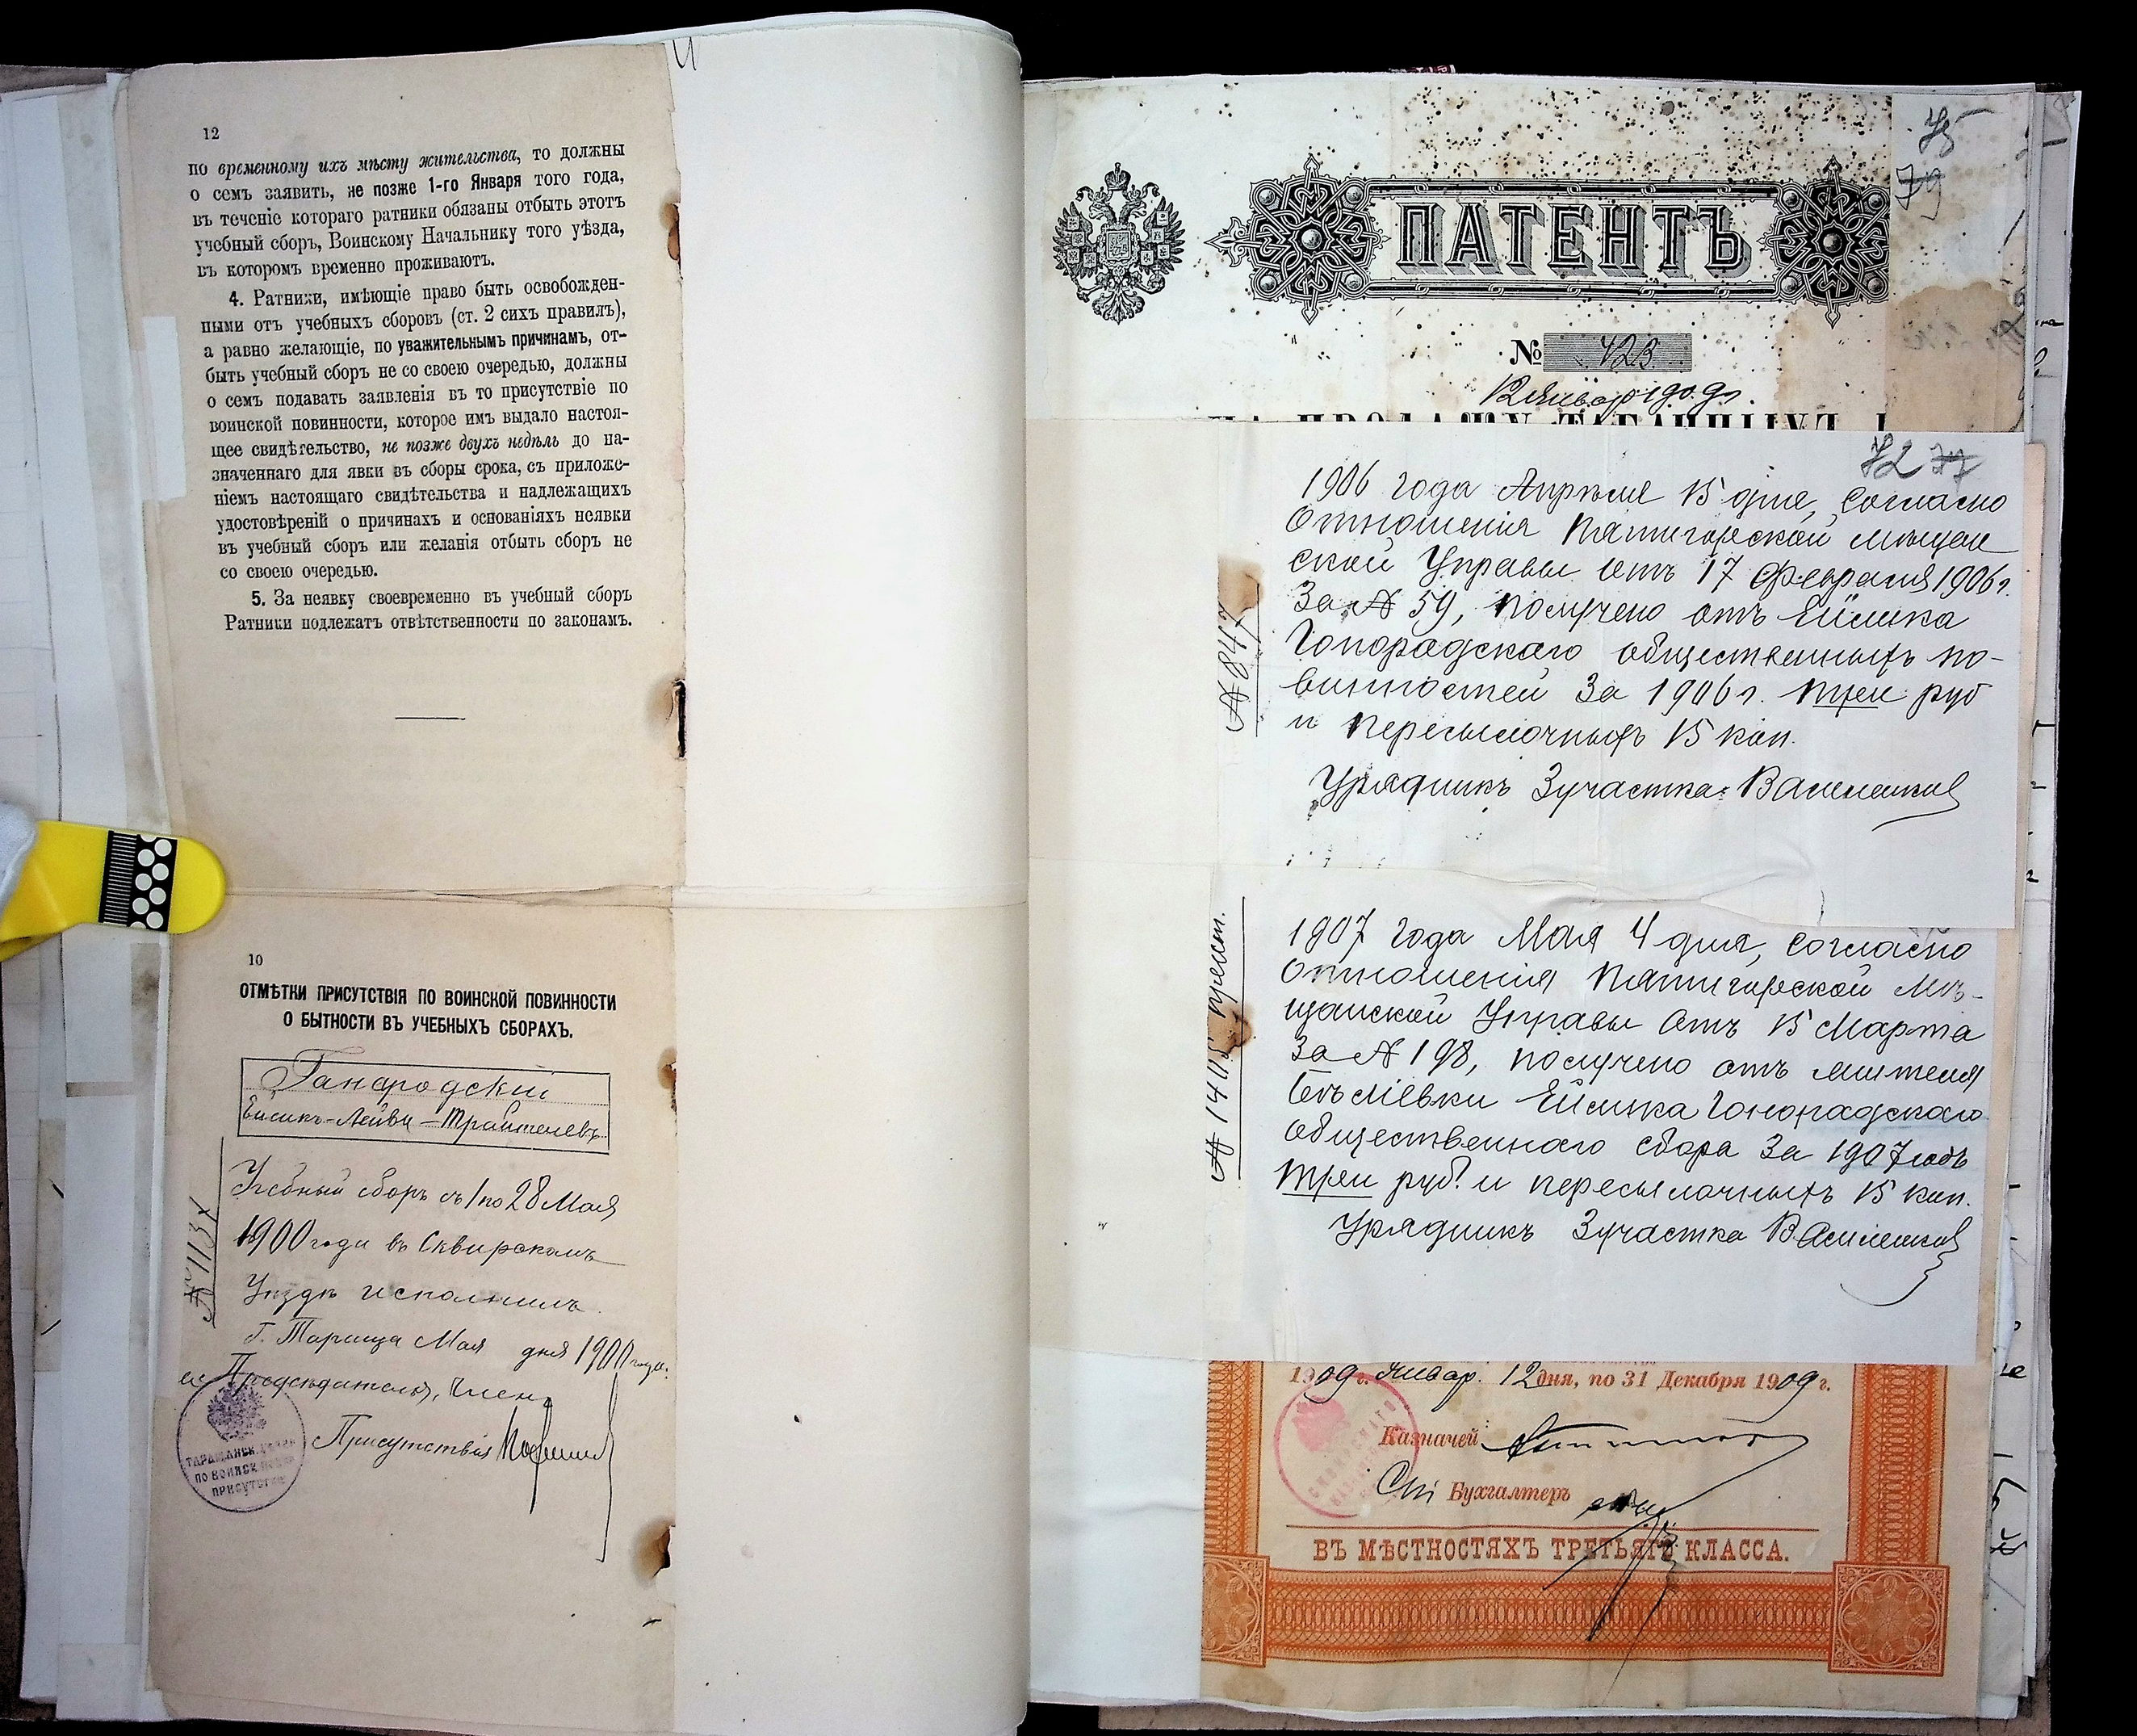 12
по временному ихъ мѣсту жительства, то должны
о семъ заявить, не позже 1-го Января того года,
въ теченіе котораго ратники обязаны отбыть этотъ
учебный сборъ, Воинскому Начальнику того уѣзда,
въ которомъ временно проживаютъ.
4. Ратники, имѣющіе право быть освобожден-
ными отъ учебныхъ сборовъ (ст. 2 сихъ правилъ),
а равно желающіе, по уважительнымъ причинамъ, от-
быть учебный сборъ не со своею очередью, должны
о семъ подавать заявленія въ то присутствіе по
воинской повинности, которое имъ выдало настоя-
щее свидѣтельство, не позже двухъ недѣль до на-
значеннаго для явки въ сборы срока, съ приложе-
ніемъ настоящаго свидѣтельства и надлежащихъ
удостовѣреній о причинахъ и основаніяхъ неявки
въ учебный сборъ или желанія отбыть сборъ не
со своею очередью.
5. За неявку своевременно въ учебный сборъ
Ратники подлежатъ отвѣтственности по законамъ.
10
ОТМѢТКИ ПРИСУТСТВІЯ ПО ВОИНСКОЙ ПОВИННОСТИ
О БЫТНОСТИ ВЪ УЧЕБНЫХЪ СБОРАХЪ.
Ганародскій
Ейсикъ-Лейви-Трайтелевъ
№ 1131
Учебный сборъ съ 1 по 28 Мая
1900 года въ Сквирскомъ
Уѣздѣ исполнилъ.
г. Тараща Мая дня 1900 года.
Предсѣдателя, Членъ
Присутствія
ТАРАЩАНСК. УѢЗДН.
ПО ВОИНСК. ПОВИН.
ПРИСУТСТВІЕ
75
79
ПАТЕНТЪ
№ 423
12 Января 1909 г.
НА ПРОДАЖУ ТАБАЧНЫХЪ
72 77
1906 года Апрѣля 15 дня, согласно
Отношенія Пятигорской мѣщан
ской Управы отъ 17 Февраля 1906 г.
За № 59, получено отъ Ейсика
Гонорадскаго общественныхъ по-
винностей за 1906 г. три руб
и пересылочныхъ 15 коп.
Урядникъ 3 участка: Василенко
№ 847
1907 года Мая 4 дня, согласно
Отношенія Пятигорской Мѣ-
щанской Управы отъ 15 Марта
За № 198, получено отъ жителя
Ейсика Гонорадскаго
общественнаго сбора За 1907 годъ
три руб. и пересылочныхъ 15 коп.
Урядникъ 3 участка Василенко
№ 1411
1909 г. Январ. 12 дня, по 31 Декабря 1909 г.
Казначей
Бухгалтеръ
ВЪ МѢСТНОСТЯХЪ ТРЕТЬЯГО КЛАССА.